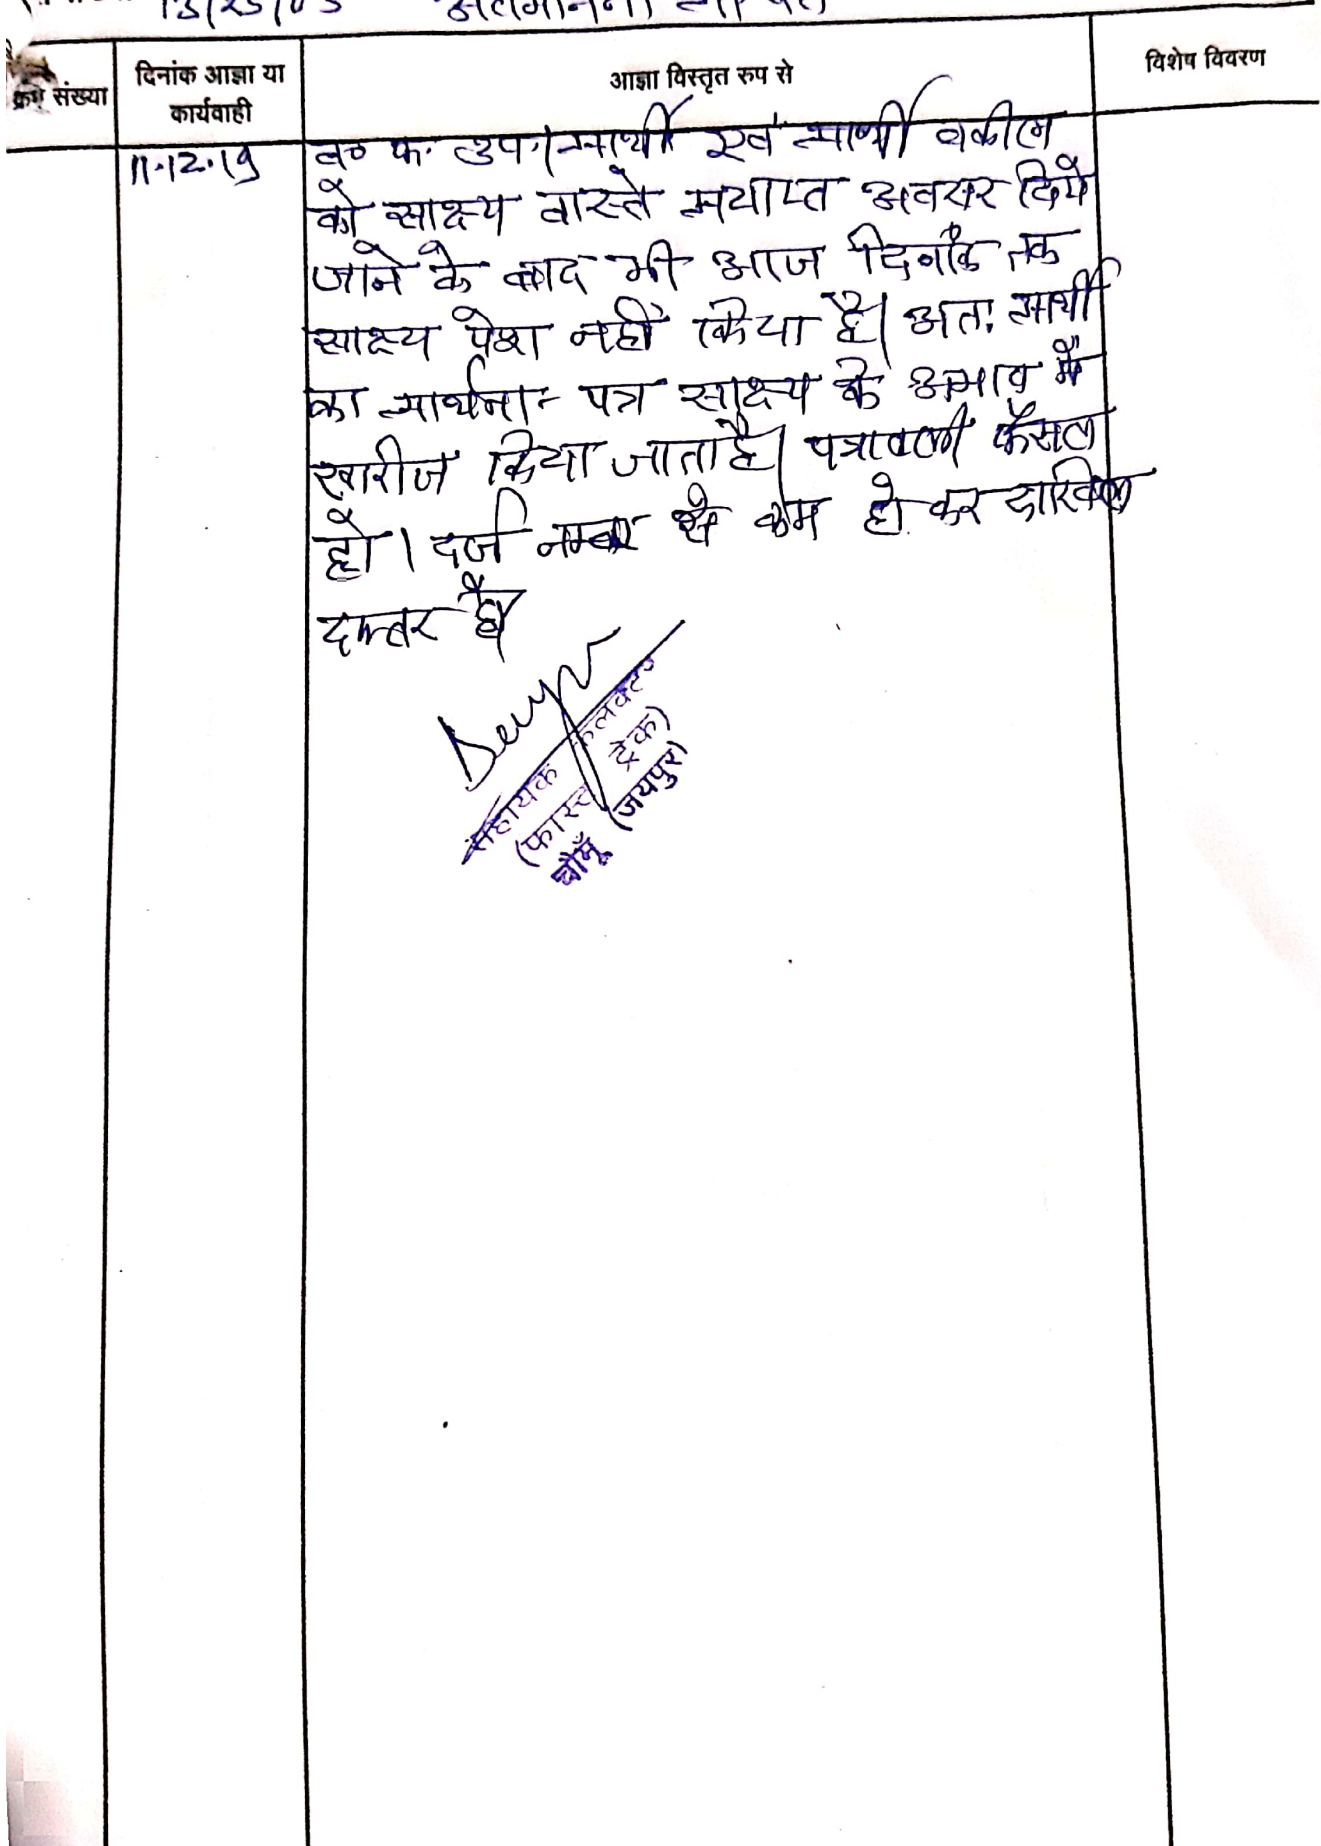 क्रम संख्या
दिनांक आज्ञा या
कार्यवाही
आज्ञा विस्तृत रुप से
विशेष विवरण
11.12.19
व० फ. उप. । प्रार्थी एवं प्रार्थी वकील
को साक्ष्य वास्ते पर्याप्त अवसर दिये
जाने के बाद भी आज दिनाँक तक
साक्ष्य पेश नहीं किया है। अतः प्रार्थी
का प्रार्थना-पत्र साक्ष्य के अभाव में
खारीज किया जाता है। पत्रावली फैसल
हो। दर्ज नम्बर से कम हो कर दाखिल
दफ्तर हो
सहायक कलक्टर
(फास्ट ट्रेक)
चौमूँ (जयपुर)